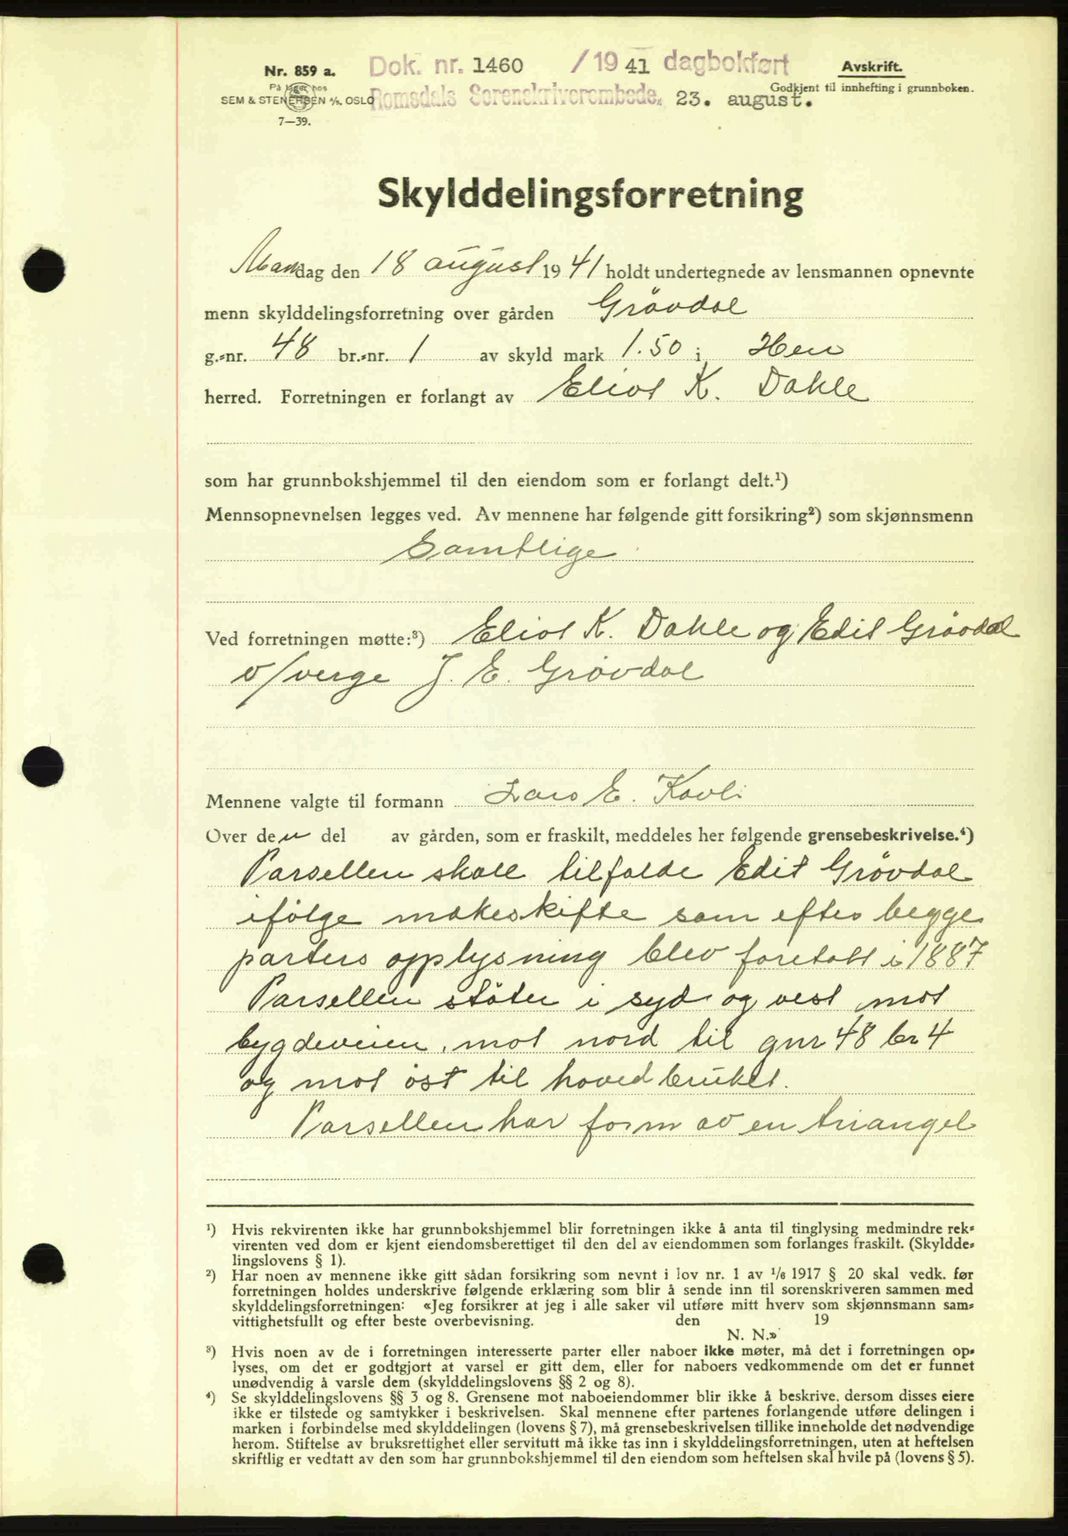 Nr. 859 a.
På lager hos
SEM & STENERSEN A/S, OSLO
7—39.
Dok. nr. 1460 / 19 41 dagbokført
Romsdals Sorenskriverembede, 23. august.
Avskrift.
Godkjent til innhefting i grunnboken.
Skylddelingsforretning
Mandag den 18 august 19 41 holdt undertegnede av lensmannen opnevnte
menn skylddelingsforretning over gården Grøvdal
g.-nr. 48 br.-nr. 1 av skyld mark 1.50 i Hen
herred. Forretningen er forlangt av Eliot K. Dahle
som har grunnbokshjemmel til den eiendom som er forlangt delt.¹)
Mennsopnevnelsen legges ved. Av mennene har følgende gitt forsikring²) som skjønnsmenn
Samtlige
Ved forretningen møtte:³) Eliot K. Dahle og Edit Grøvdal
v/verge J. E. Grøvdal
Mennene valgte til formann Lars E. Kavli
Over den del av gården, som er fraskilt, meddeles her følgende grensebeskrivelse.⁴)
Parsellen skall tilfalde Edit Grøvdal
ifølge makeskifte som efter begge
parters opplysning blev foretatt i 1887
Parsellen støter i syd og vest mot
bygdeveien, mot nord til gnr 48 br 4
og mot øst til hovedbruket.
Parsellen har form av en triangel
¹) Hvis rekvirenten ikke har grunnbokshjemmel blir forretningen ikke å anta til tinglysing medmindre rek-
virenten ved dom er kjent eiendomsberettiget til den del av eiendommen som forlanges fraskilt. (Skyldde-
lingslovens § 1).
²) Har noen av mennene ikke gitt sådan forsikring som nevnt i lov nr. 1 av 1/6 1917 § 20 skal vedk. før
forretningen holdes underskrive følgende erklæring som blir å sende inn til sorenskriveren sammen med
skylddelingsforretningen: «Jeg forsikrer at jeg i alle saker vil utføre mitt hverv som skjønnsmann sam-
vittighetsfullt og efter beste overbevisning. den 19
N. N.»
³) Hvis noen av de i forretningen interesserte parter eller naboer ikke møter, må det i forretningen op-
lyses, om det er godtgjort at varsel er gitt dem, eller for naboers vedkommende om det er funnet
unødvendig å varsle dem (skylddelingslovens §§ 2 og 8).
⁴) Se skylddelingslovens §§ 3 og 8. Grensene mot naboeiendommer blir ikke å beskrive, dersom disses eiere
ikke er tilstede og samtykker i beskrivelsen. Skal mennene efter partenes forlangende utføre delingen i
marken i forbindelse med skylddelingen (lovens § 7), må grensebeskrivelsen tillike inneholde det nødvendige
herom. Stiftelse av bruksrettighet eller servitutt må ikke tas inn i skylddelingsforretningen, uten at heftelsen
skriftlig er vedtatt av den som har grunnbokshjemmel til den eiendom som heftelsen skal hvile på (lovens § 5).